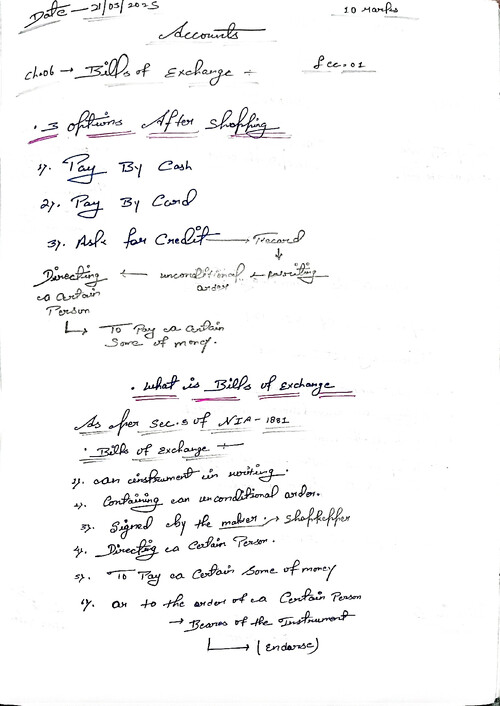 Date - 21/03/2025
10 Marks
Accounts
Ch.06 → Bills of Exchange ÷
Lec.01
• 3 options After Shopping
1). Pay By Cash
2). Pay By Card
3). Ask for Credit → record
↓
Directing ← unconditional order ← writing
a certain
Person
↳ To Pay a certain
Some of money.
• What is Bills of Exchange
As per Sec.5 of NIA - 1881
• Bills of Exchange ÷
1). an instrument in writing.
2). Containing an unconditional order.
3). Signed by the maker. → Shopkepper
4). Directing a Certain Person.
5). To Pay a Certain Some of money
6). or to the order of a Certain Person
→ Bearer of the Instrument
↳ (Endorse)